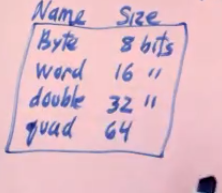 Name Size
Byte 8 bits
word 16 "
double 32 "
quad 64